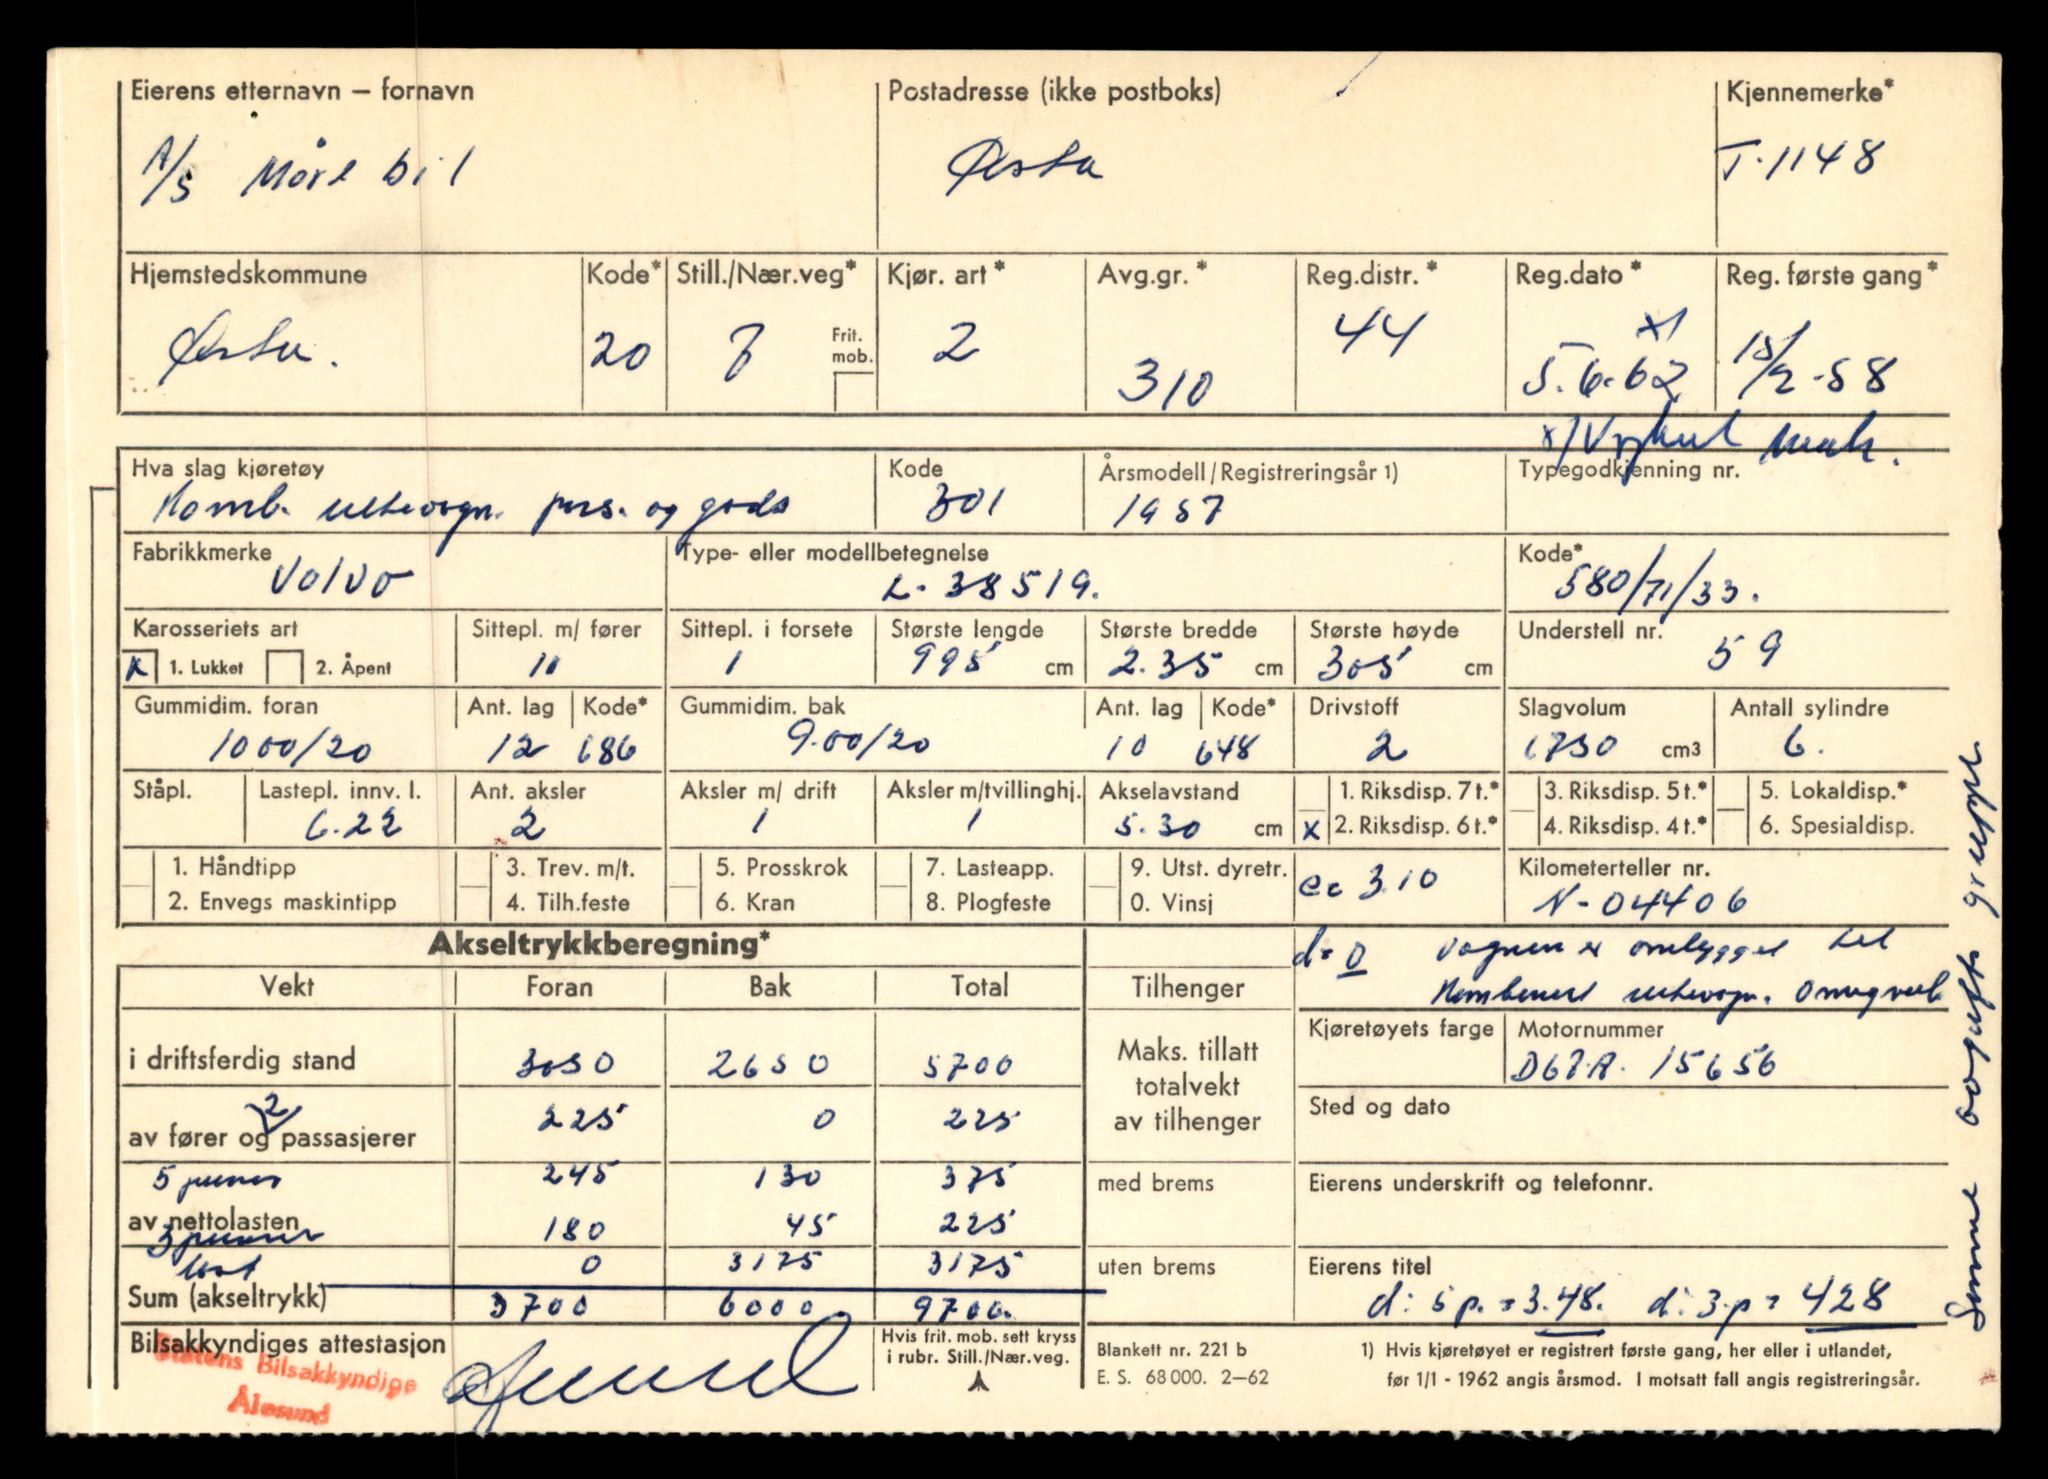 Eierens etternavn – fornavn Postadresse (ikke postboks) Kjennemerke*
A/S Møre bil Ørsta T-1148
Hjemstedskommune Kode* Still./Nær.veg* Kjør. art* Avg.gr.* Reg.distr.* Reg.dato* Reg. første gang*
Ørsta. 20 7 Frit. mob. 2 310 44 x) 5.6.62 15/2-58
Hva slag kjøretøy Kode Årsmodell/Registreringsår 1) Typegodkjenning nr.
Komb. rutevogn. pers. og gods 301 1957
Fabrikkmerke Type- eller modellbetegnelse Kode*
Volvo L-38519. 580/71/33.
Karosseriets art Sittepl. m/ fører Sittepl. i forsete Største lengde Største bredde Største høyde Understell nr.
x 1. Lukket 2. Åpent 11 1 995 cm 2.35 cm 305 cm 59
Gummidim. foran Ant. lag Kode* Gummidim. bak Ant. lag Kode* Drivstoff Slagvolum Antall sylindre
1000/20 12 686 9.00/20 10 648 2 cm3 6.
Ståpl. Lastepl. innv. l. Ant. aksler Aksler m/ drift Aksler m/tvillinghj. Akselavstand 1. Riksdisp. 7 t.* 3. Riksdisp. 5 t.* 5. Lokaldisp.*
6.22 2 1 1 5.30 cm x 2. Riksdisp. 6 t.* 4. Riksdisp. 4 t.* 6. Spesialdisp.
1. Håndtipp 3. Trev. m/t. 5. Prosskrok 7. Lasteapp. 9. Utst. dyretr. 3.10 Kilometerteller nr.
2. Envegs maskintipp 4. Tilh.feste 6. Kran 8. Plogfeste 0. Vinsj N-04406
Akseltrykkberegning* d=0 Vognen er ombygget til
Vekt Foran Bak Total Tilhenger Kombinert rutevogn.
Kjøretøyets farge Motornummer
i driftsferdig stand 3050 2650 5700 Maks. tillatt totalvekt av tilhenger D67.A. 15656
2 Sted og dato
av fører og passasjerer 225 0 225
5 personer 245 130 375 med brems Eierens underskrift og telefonnr.
av nettolasten 180 45 225
3 personer
last 0 3175 3175 uten brems Eierens titel
Sum (akseltrykk) 3700 6000 9700. d: 5 p. = 3.48. d: 3.p = 428
Bilsakkyndiges attestasjon Hvis frit. mob. sett kryss i rubr. Still./Nær.veg. Blankett nr. 221 b 1) Hvis kjøretøyet er registrert første gang, her eller i utlandet,
E. S. 68 000. 2–62 før 1/1 - 1962 angis årsmod. I motsatt fall angis registreringsår.
Statens Bilsakkyndige
Ålesund
Samme avgifts gruppe